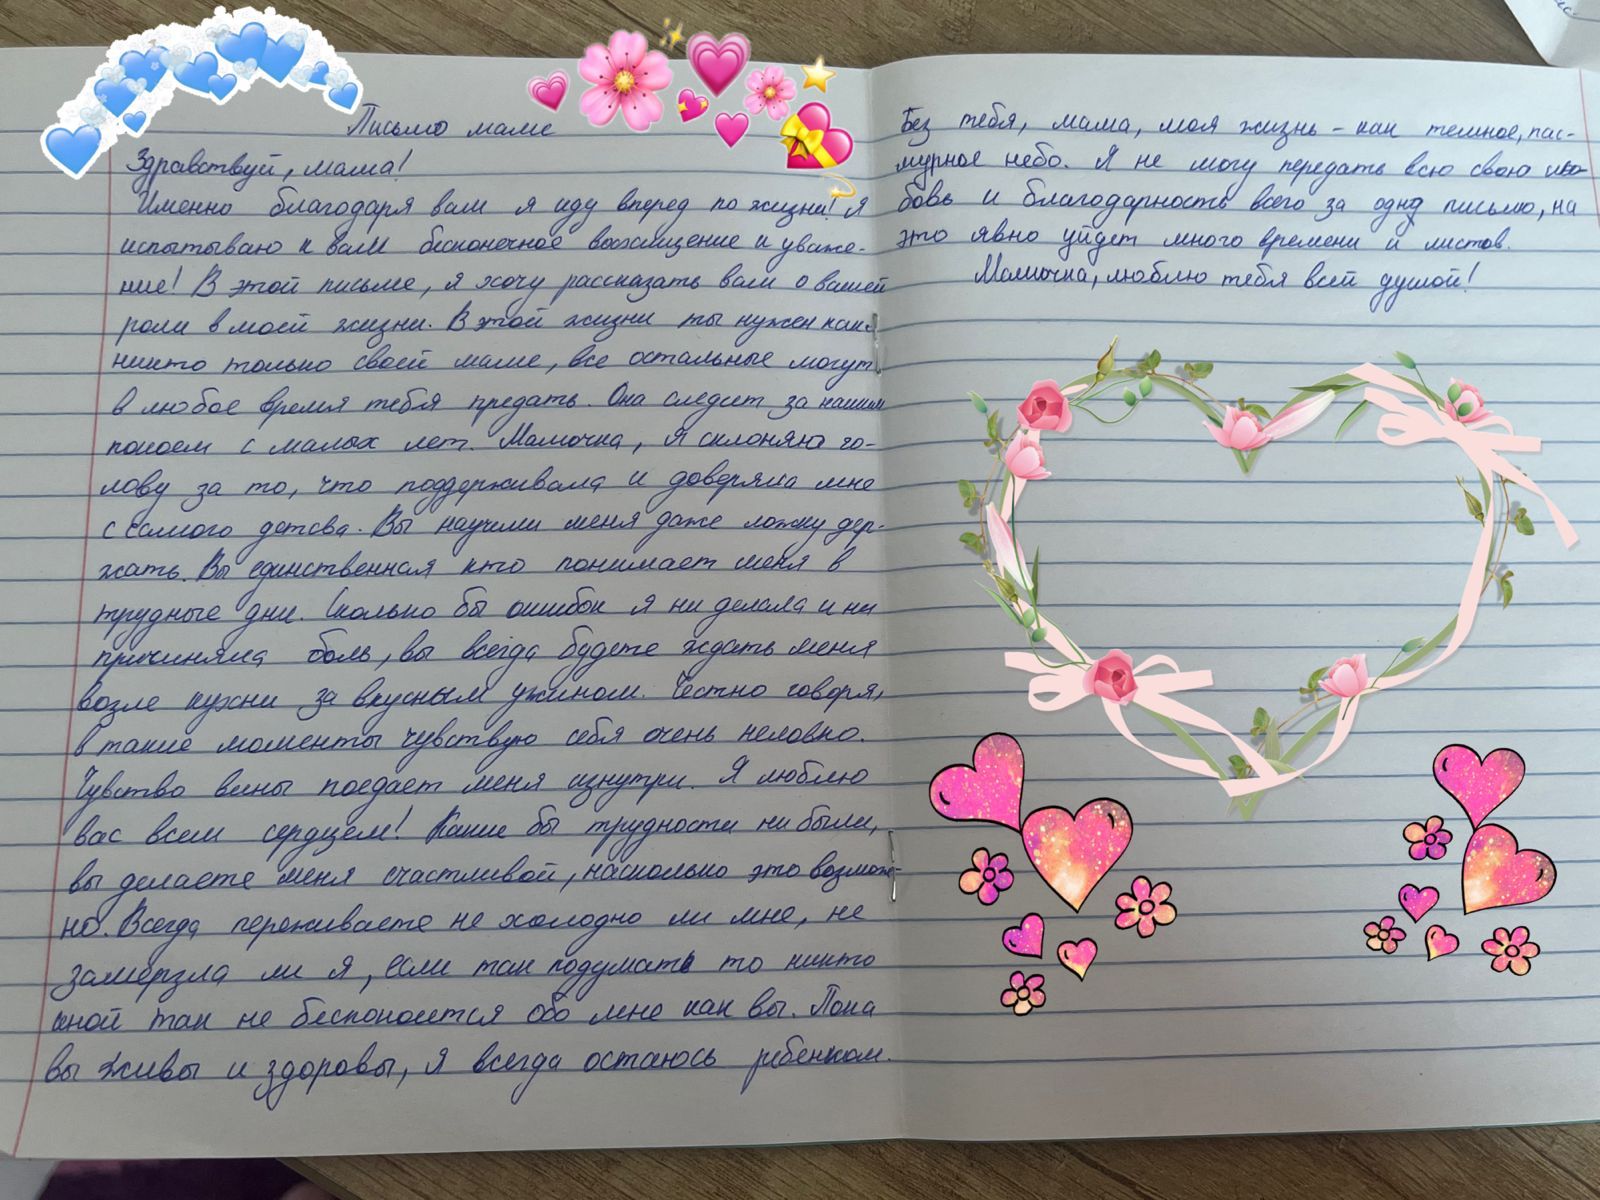 Письмо маме
Здравствуй, мама!
Именно благодаря вам я иду вперед по жизни! Я
испытываю к вам бесконечное восхищение и уваже-
ние! В этой письме, я хочу рассказать вам о вашей
роли в моей жизни. В этой жизни ты нужен как
никто только своей маме, все остальные могут
в любое время тебя предать. Она следит за нашим
покоем с малых лет. Мамочка, я склоняю го-
лову за то, что поддерживала и доверяла мне
с самого детсва. Вы научили меня даже ложку дер-
жать. Вы единственная кто понимает меня в
трудные дни. Сколько бы ошибок я ни делала и ни
причиняла боль, вы всегда будете ждать меня
возле кухни за вкусным ужином. Честно говоря,
в такие моменты чувствую себя очень неловко.
Чувство вины поедает меня изнутри. Я люблю
вас всем сердцем! Какие бы трудности ни были,
вы делаете меня счастливой, насколько это возмож-
но. Всегда переживаете не холодно ли мне, не
замёрзла ли я, если так подумать то никто
иной так не беспокоится обо мне как вы. Пока
вы живы и здоровы, я всегда остаюсь ребенком.
Без тебя, мама, моя жизнь - как темное, пас-
мурное небо. Я не могу передать всю свою лю-
бовь и благодарность всего за одну письмо, на
это явно уйдет много времени и листов.
Мамочка, люблю тебя всей душой!